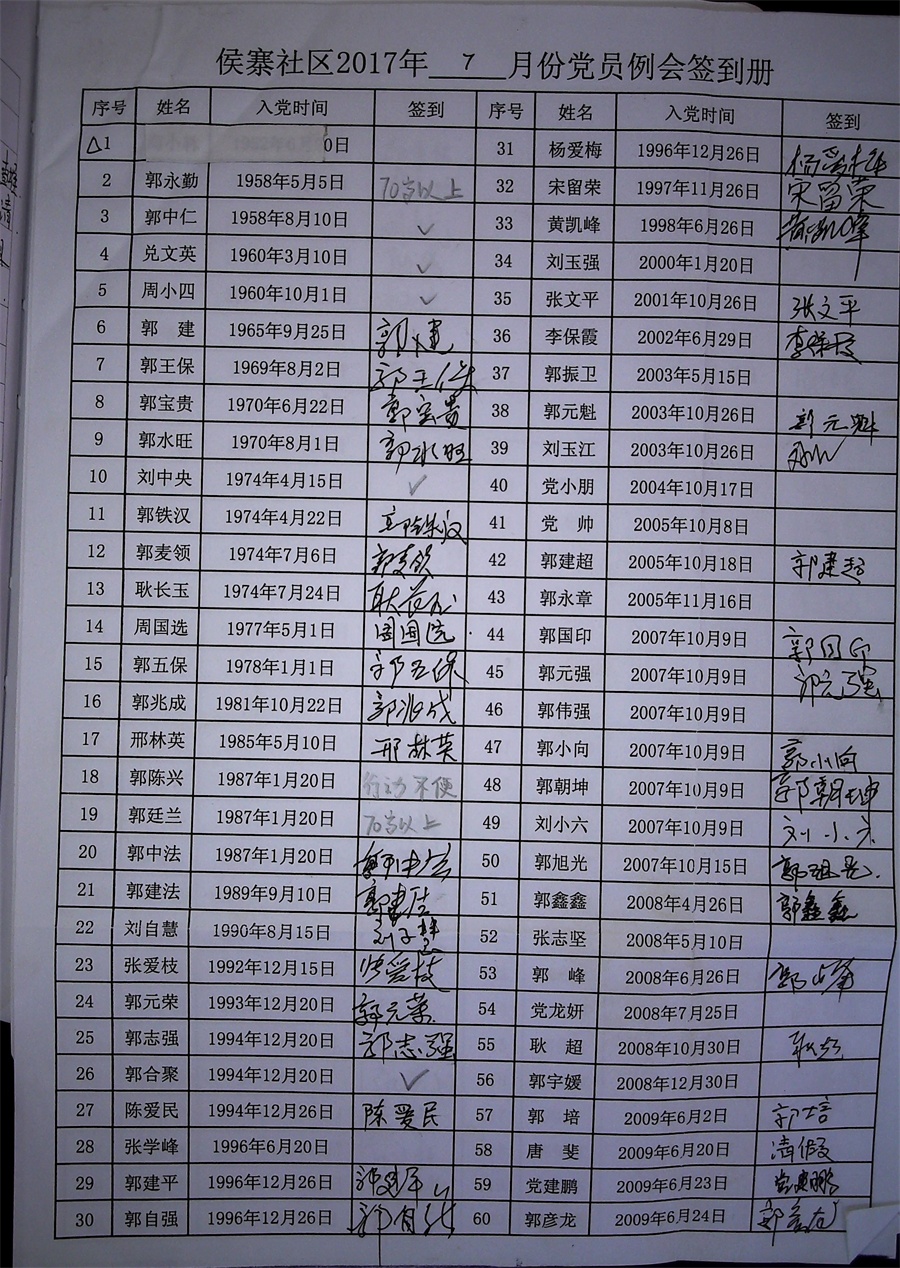 侯寨社区2017年 7 月份党员例会签到册
序号 姓名 入党时间 签到 序号 姓名 入党时间 签到
△1 0日 31 杨爱梅 1996年12月26日 杨爱梅
2 郭永勤 1958年5月5日 70岁以上 32 宋留荣 1997年11月26日 宋留荣
3 郭中仁 1958年8月10日 ✓ 33 黄凯峰 1998年6月26日 黄凯峰
4 兑文英 1960年3月10日 ✓ 34 刘玉强 2000年1月20日
5 周小四 1960年10月1日 ✓ 35 张文平 2001年10月26日 张文平
6 郭 建 1965年9月25日 郭建 36 李保霞 2002年6月29日 李保霞
7 郭王保 1969年8月2日 郭王保 37 郭振卫 2003年5月15日
8 郭宝贵 1970年6月22日 郭宝贵 38 郭元魁 2003年10月26日 郭元魁
9 郭水旺 1970年8月1日 郭水旺 39 刘玉江 2003年10月26日
10 刘中央 1974年4月15日 ✓ 40 党小朋 2004年10月17日
11 郭铁汉 1974年4月22日 郭铁汉 41 党 帅 2005年10月8日
12 郭麦领 1974年7月6日 郭麦领 42 郭建超 2005年10月18日 郭建超
13 耿长玉 1974年7月24日 耿长玉 43 郭永章 2005年11月16日
14 周国选 1977年5月1日 周国选 44 郭国印 2007年10月9日 郭国印
15 郭五保 1978年1月1日 郭五保 45 郭元强 2007年10月9日 郭元强
16 郭兆成 1981年10月22日 郭兆成 46 郭伟强 2007年10月9日
17 邢林英 1985年5月10日 邢林英 47 郭小向 2007年10月9日 郭小向
18 郭陈兴 1987年1月20日 行动不便 48 郭朝坤 2007年10月9日 郭朝坤
19 郭廷兰 1987年1月20日 70岁以上 49 刘小六 2007年10月9日 刘小六
20 郭中法 1987年1月20日 郭中法 50 郭旭光 2007年10月15日 郭旭光.
21 郭建法 1989年9月10日 郭建法 51 郭鑫鑫 2008年4月26日 郭鑫鑫
22 刘自慧 1990年8月15日 刘子慧 52 张志坚 2008年5月10日
23 张爱枝 1992年12月15日 张爱枝 53 郭 峰 2008年6月26日 郭峰
24 郭元荣 1993年12月20日 郭元荣 54 党龙妍 2008年7月25日
25 郭志强 1994年12月20日 郭志强 55 耿 超 2008年10月30日 耿超
26 郭合聚 1994年12月20日 ✓ 56 郭宇媛 2008年12月30日
27 陈爱民 1994年12月26日 陈爱民 57 郭 培 2009年6月2日 郭培
28 张学峰 1996年6月20日 58 唐 斐 2009年6月20日 请假
29 郭建平 1996年12月26日 郭建平 59 党建鹏 2009年6月23日 党建鹏
30 郭自强 1996年12月26日 郭自强 60 郭彦龙 2009年6月24日 郭彦龙